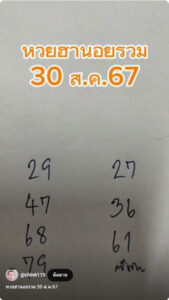 หวยฮานอยรวม
30 ส.ค.67
29 27
47 36
68 61
79
@chin6119 ติดตาม
หวยฮานอยรวม 30 ส.ค.67